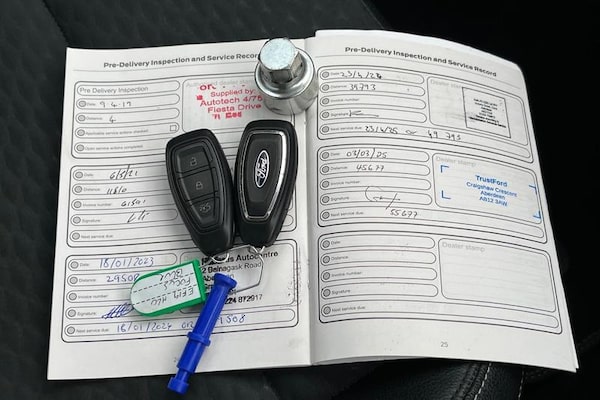 Pre-Delivery Inspection and Service Record
Pre Delivery Inspection
Supplied by
Autotech 4/75
Fiesta Drive
Date: 9.4.19
Distance: 4
Applicable service actions checked:
Open service actions completed:
Date: 6/5/21
Distance:
Invoice number:
Signature:
Next service due:
Date: 18/01/2023
Distance: 29508
Invoice number:
Signature:
Next service due: 18/01/2024 OR 508
Autocentre
2 Balnagask Road
Aberdeen
224 872917
FOCUS
BLUE
Ford
Pre-Delivery Inspection and Service Record
Date: 23/4/24
Distance: 39793
Invoice number:
Signature:
Next service due: 23/4/25 or 49 793
Date: 03/03/25
Distance: 45677
Invoice number:
Signature:
Next service due: 55677
Dealer stamp:
TrustFord
Craigshaw Crescent
Aberdeen
AB12 3AW
Date:
Distance:
Invoice number:
Signature:
Next service due:
Dealer stamp:
25